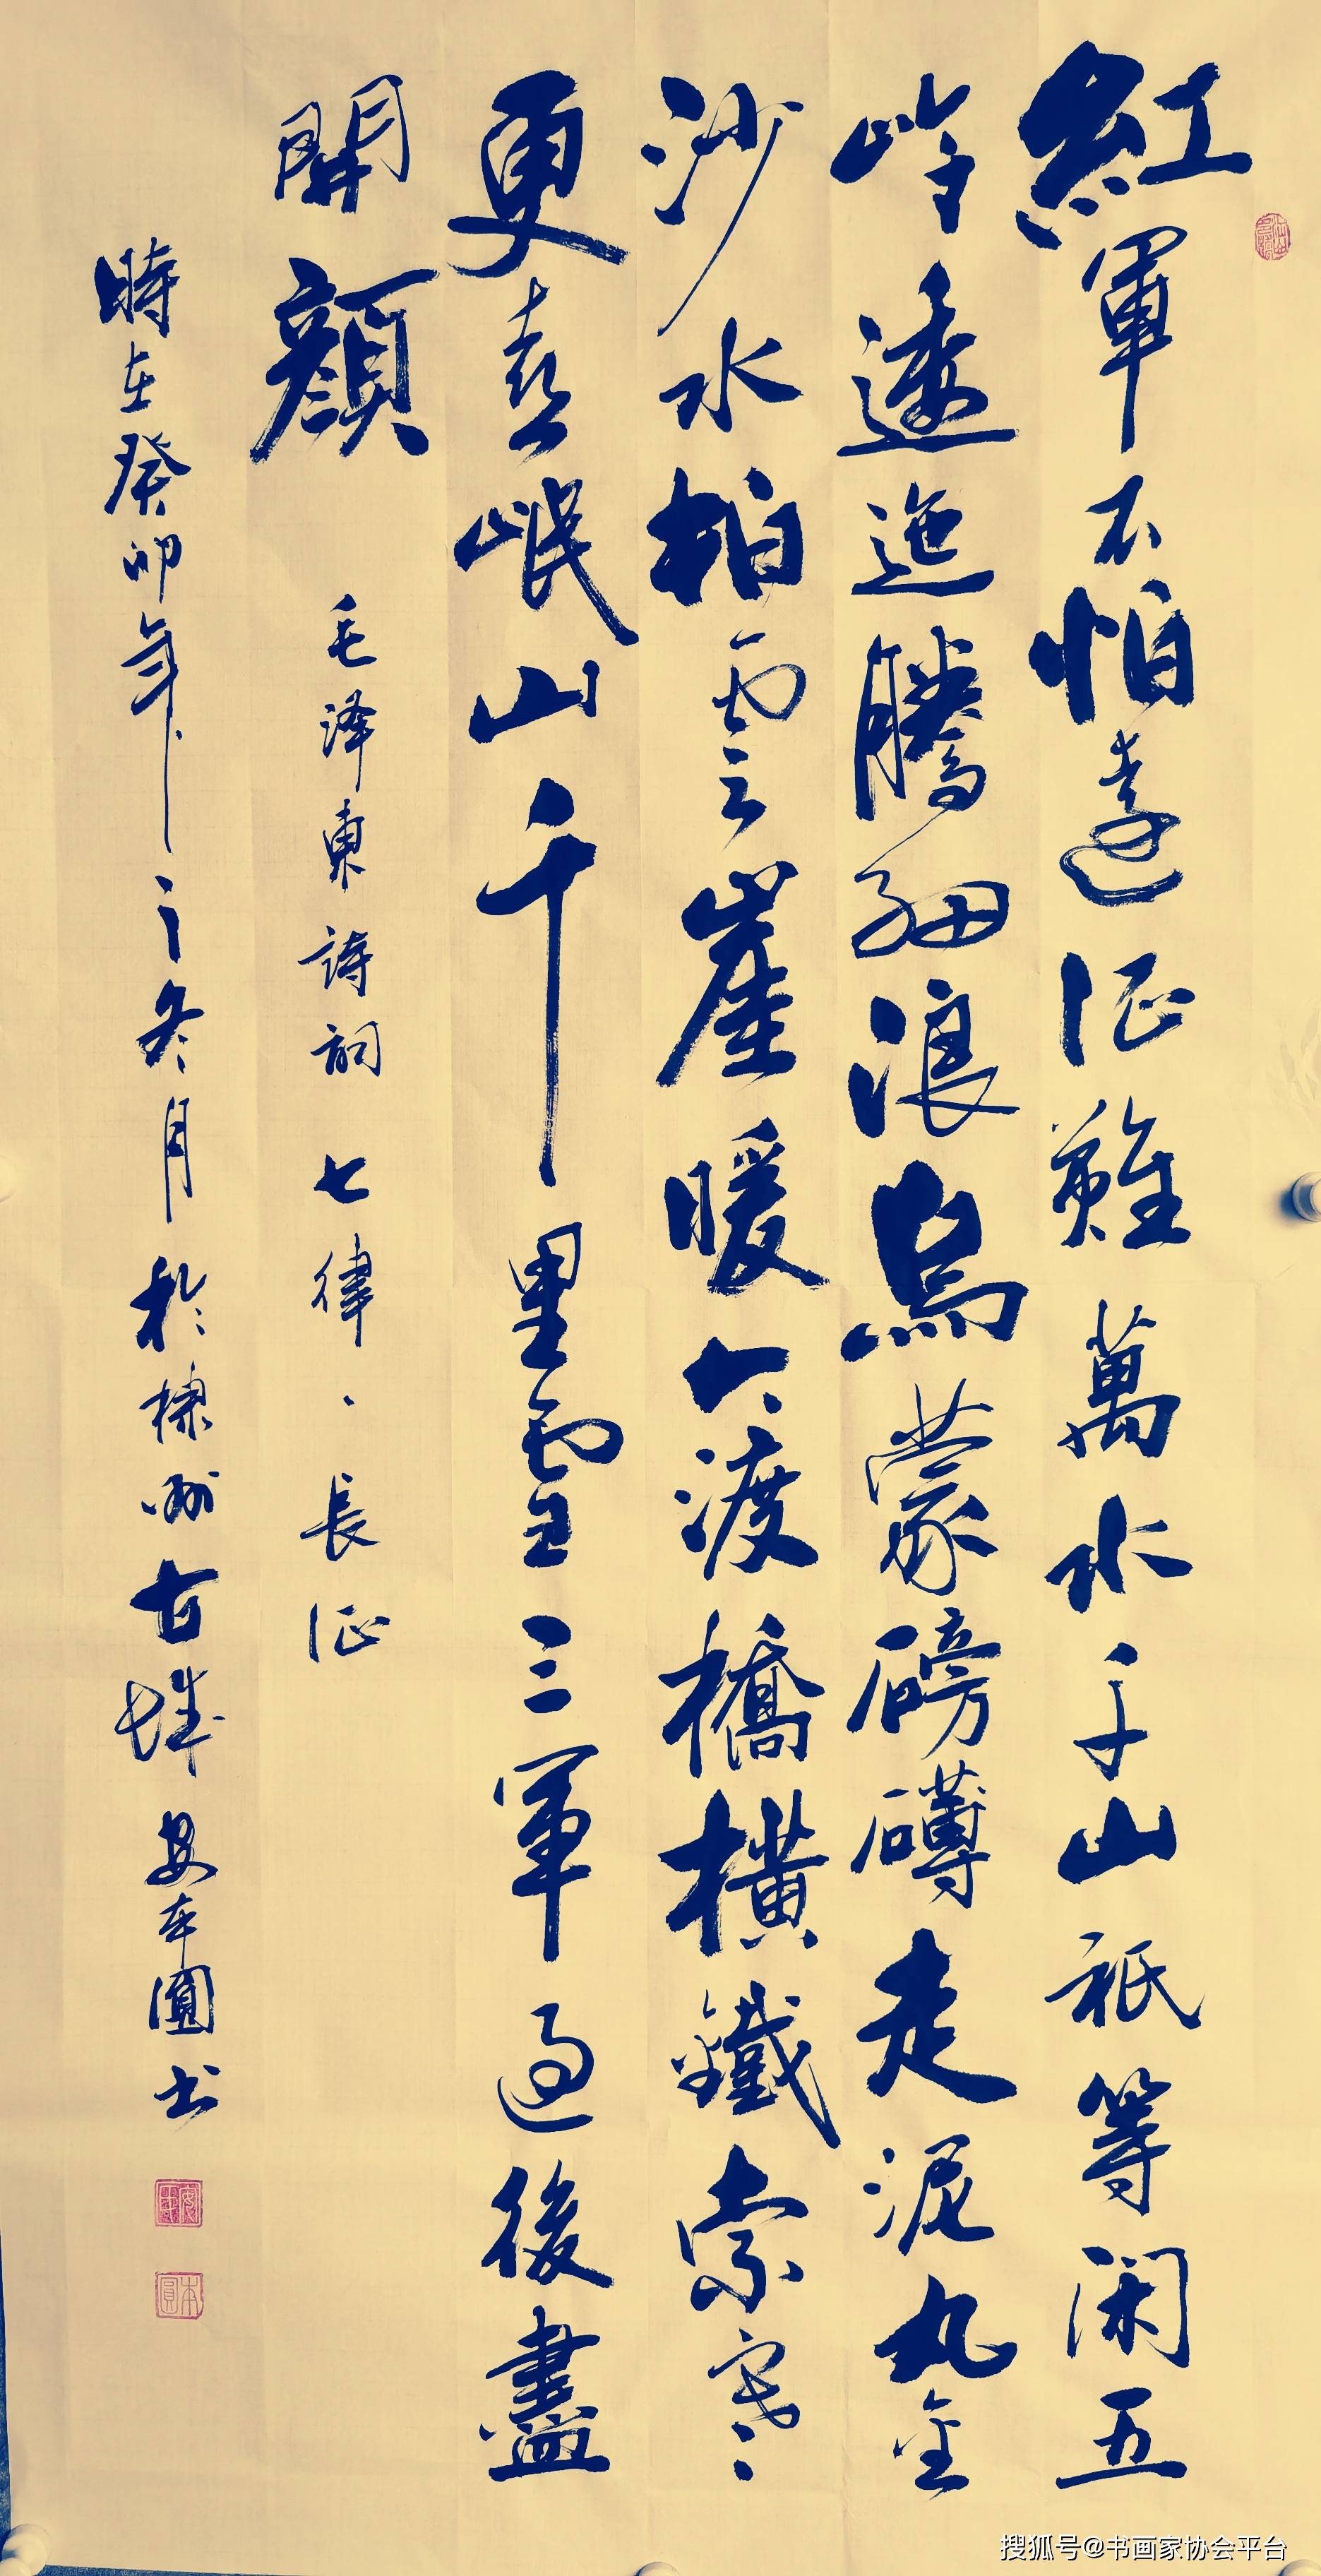 紅軍不怕遠征難萬水千山祇等閑五
岭逶迤騰細浪烏蒙磅礴走泥丸金
沙水拍雲崖暖大渡橋橫鐵索寒
更喜岷山千里雪三軍過後盡
開顏
毛泽東詩詞七律·長征
時在癸卯年之冬月於棣州古城安本圓书
搜狐号@书画家协会平台